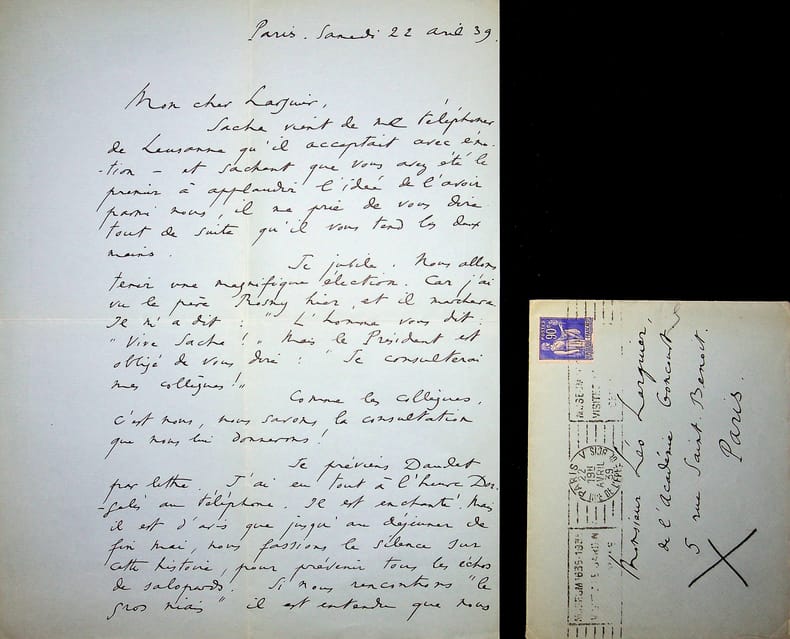 Paris. Samedi 22 avril 39.
Mon cher Larguier,
Sacha vient de me téléphoner
de Lausanne qu'il acceptait avec émo-
-tion – et sachant que vous avez été le
premier à applaudir l'idée de l'avoir
parmi nous, il me prie de vous dire
tout de suite qu'il vous tend les deux
mains.
Je jubile. Nous allons
tenir une magnifique élection. Car j'ai
vu le père Rosny hier, et il marchera.
Il m'a dit : " L'homme vous dit
"Vive Sacha ! " Mais le Président est
obligé de vous dire " Je consulterai
mes collègues !"
Comme les collègues,
c'est nous, nous savons la consultation
que nous lui donnerons !
Je préviens Daudet
par lettre. J'ai eu tout à l'heure Dor-
-gelès au téléphone. Il est enchanté. Mais
il est d'avis que jusqu'au déjeuner de
fin mai, nous fassions le silence sur
cette histoire, pour prévenir tous les échos
de salopards. Si nous rencontrons "le
gros niais" il est entendu que nous
POSTES
90c
PARIS
22
AVRIL
39
Monsieur Léo Larguier,
de l'Académie Goncourt
5 rue Saint. Benoit.
Paris.
MUSEUM 1635-193
VISITEZ LE JARDIN
VISITE